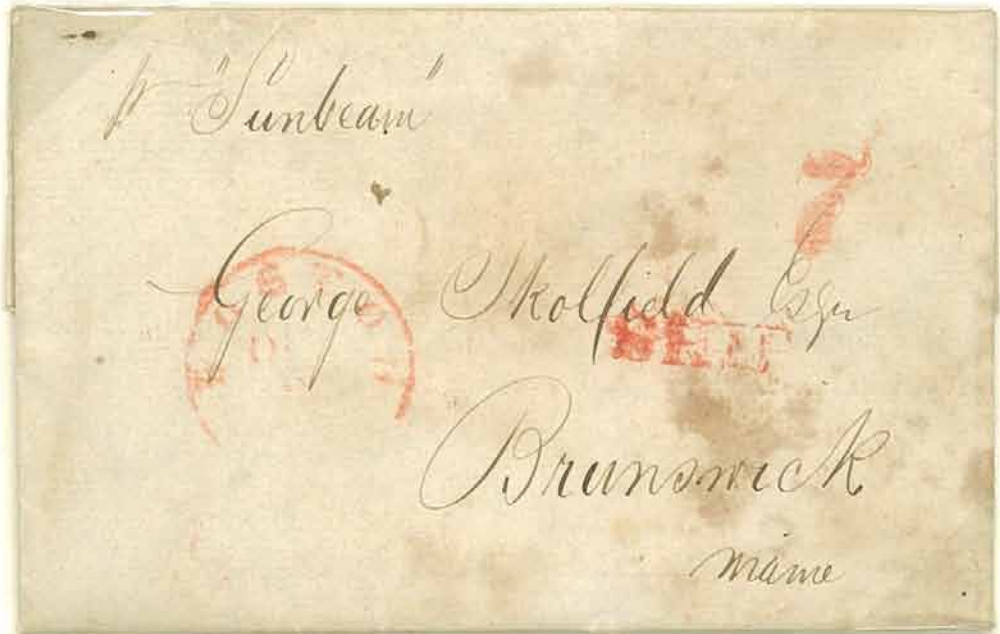 pr "Sunbeam"
7
George Skolfield Esqr
SHIP
Brunswick
Maine